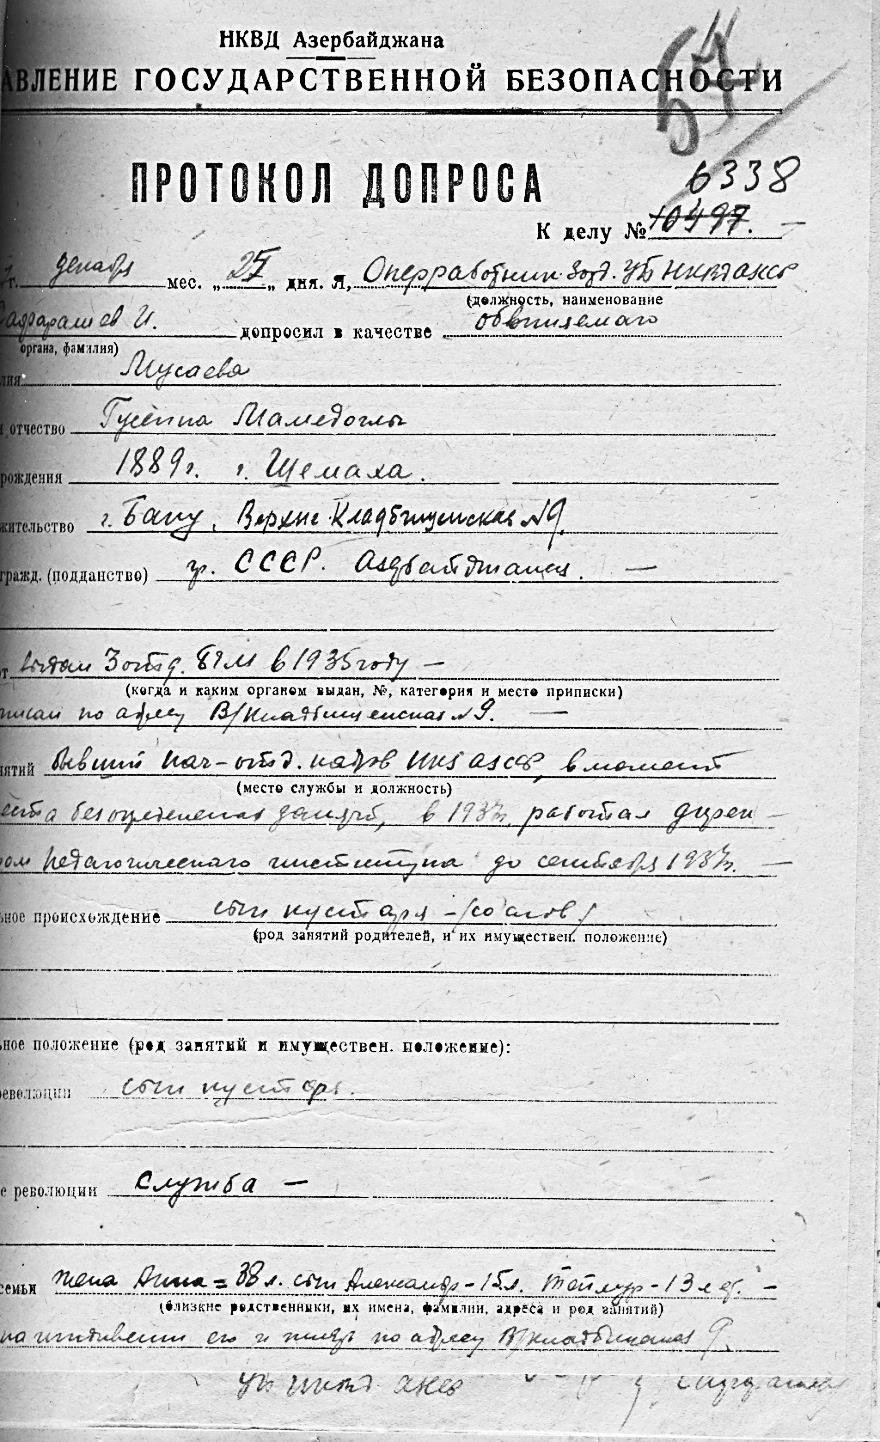 54
НКВД Азербайджана
АВЛЕНИЕ ГОСУДАРСТВЕННОЙ БЕЗОПАСНОСТИ
ПРОТОКОЛ ДОПРОСА
6338
К делу № 10497. —
г. декабря мес. „25„ дня. Я, Оперработник 3отд. УГБ НКВД АзССР
(должность, наименование
И. допросил в качестве обвиняемаго
органа, фамилия)
лия Мусаева
и отчество Гусейна Мамедоглы
рождения 1889г. г. Шемаха.
жительство г. Баку, Верхне Кладбищенская №9.
гражд. (подданство) гр. СССР. Азербайджанец. —
т 3 отд. в 1935 году —
(когда и каким органом выдан, №, категория и место приписки)
писан по адресу В/Кладбищенская №9. —
нятий Бывший нач-отд. кадров НКЗ АзССР, в момент
(место службы и должность)
еста без определенных занятий, в 1937г. работал дирек —
ром педагогического института до сентября 1937г. —
ьное происхождение сын кустаря
(род занятий родителей, и их имуществен. положение)
ьное положение (род занятий и имуществен. положение):
революции сын кустаря.
е революции Служба —
семьи жена Анна = 38 л. сын Александр – 15 л. Теймур – 13 лет. —
(близкие родственники, их имена, фамилии, адреса и род занятий)
на иждивении его и живут по адресу В/Кладбищенская 9.
УГБ НКВД АзССР